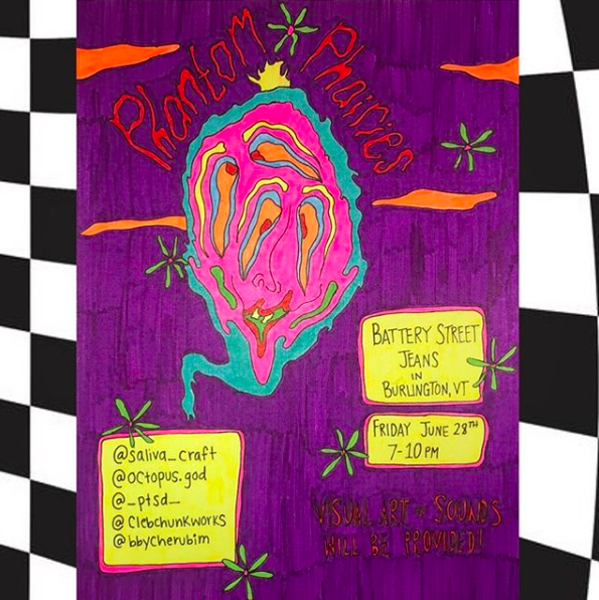 Phantom Phairies
BATTERY STREET
JEANS
IN
BURLINGTON, VT
FRIDAY JUNE 28TH
7-10 PM
@saliva_craft
@octopus.god
@_ptsd_
@clebchunkworks
@bbycherubim
VISUAL ART + SOUNDS
WILL BE PROVIDED!